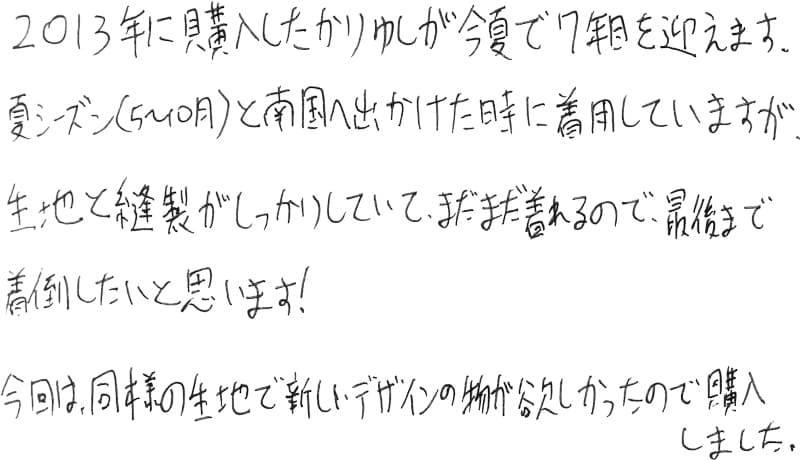 2013年に購入したかりゆしが今夏で7年目を迎えます。
夏シーズン(5~10月)と南国へ出かけた時に着用していますが、
生地と縫製がしっかりしていて、まだまだ着れるので、最後まで
着倒したいと思います!
今回は、同様の生地で新しいデザインの物が欲しかったので購入
しました。